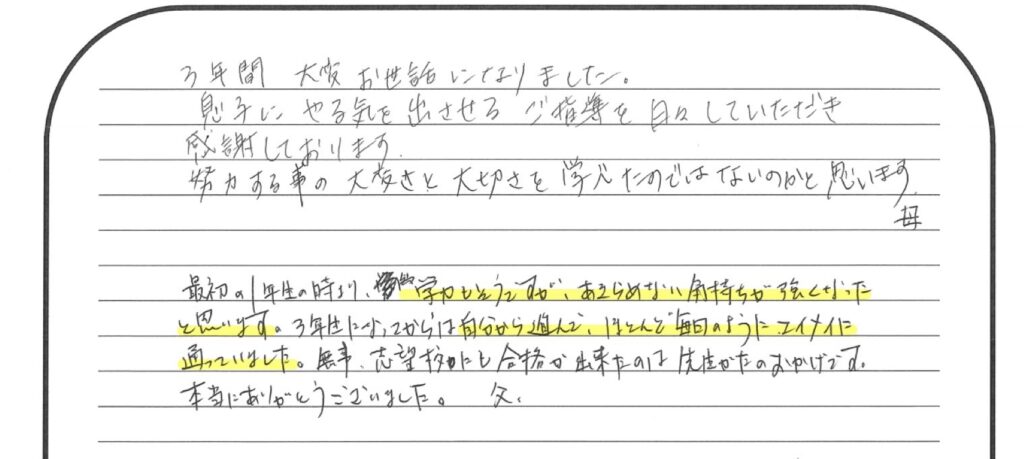 3年間 大変お世話になりました。
息子に やる気を出させる ご指導を日々していただき
感謝しております.
努力する事の大変さと大切さを学んだのではないのかと思います.
母
最初の1年生の時より、学力もそうですが、あきらめない気持ちが強くなった
と思います。3年生になってからは自分から進んで、ほとんど毎日のようにエイメイに
通っていました。無事、志望校にも合格が出来たのは先生がたのおかげです。
本当にありがとうございました。 父.